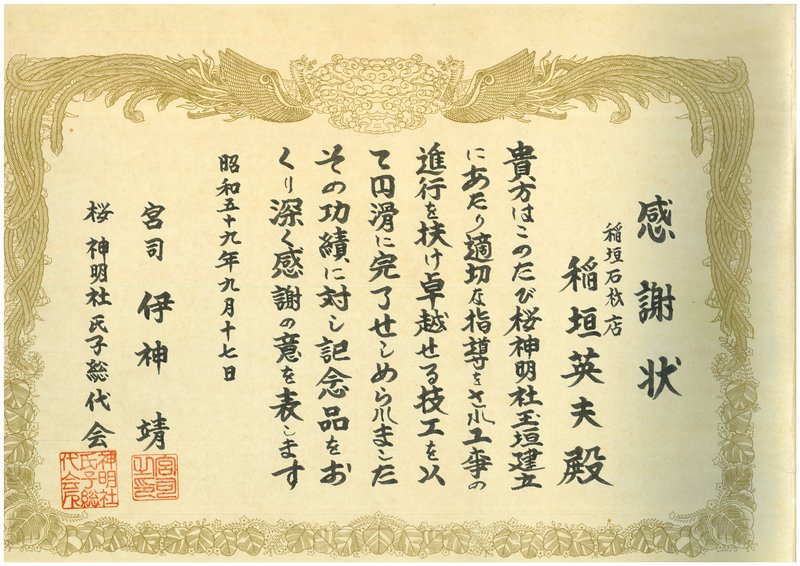 感謝状
稲垣石材店
稲垣英夫殿
貴方はこのたび桜神明社玉垣建立
にあたり適切な指導をされ工事の
進行を扶け卓越せる技工を以
て円滑に完了せしめられました
その功績に対し記念品をお
くり深く感謝の意を表します
昭和五十九年九月十七日
宮司 伊神 靖
桜 神明社氏子総代会
宮司之印
神明社氏子総代会印